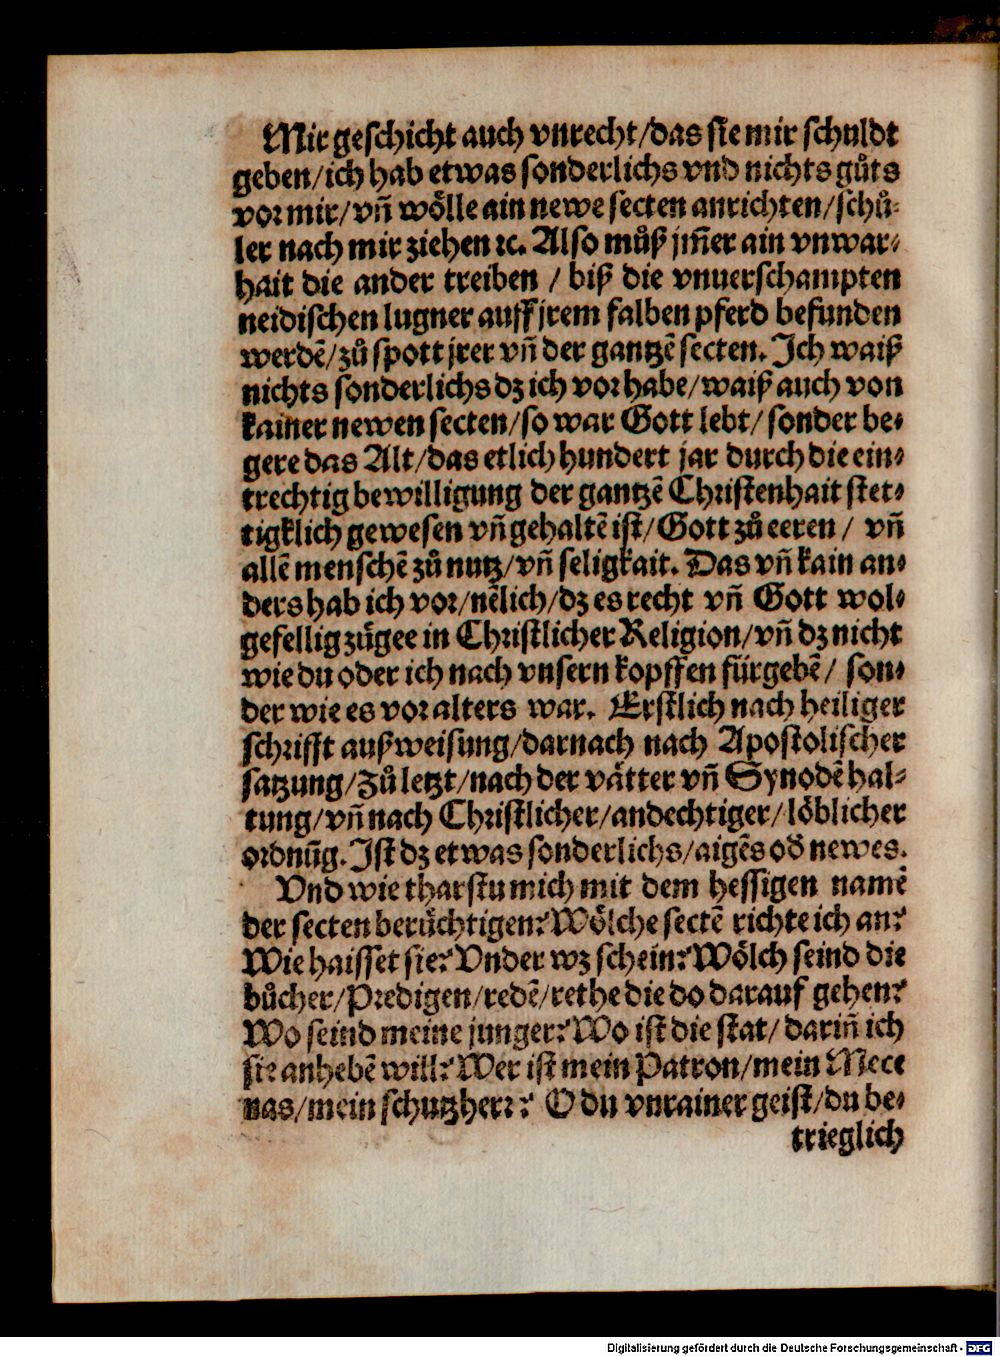 Mir geschicht auch vnrecht/das sie mir schuldt
geben/ich hab etwas sonderlichs vnd nichts gůts
vor mir/vn̄ wo̊lle ain newe secten anrichten/schů-
ler nach mir ziehen ꝛc. Also můß jm̄er ain vnwar-
hait die ander treiben / biß die vnuerschampten
neidischen lugner auff jrem falben pferd befunden
werdē/zů spott jrer vn̄ der gantzē secten. Ich waiß
nichts sonderlichs dz ich vor habe/waiß auch von
kainer newen secten/so war Gott lebt/ sonder be-
gere das Alt/das etlich hundert jar durch die ein-
trechtig bewilligung der gantzē Christenhait stet-
tigklich gewesen vn̄ gehaltē ist/Gott zů eeren / vn̄
allē menschē zů nutz/vn̄ seligkait. Das vn̄ kain an-
ders hab ich vor/nēlich/dz es recht vn̄ Gott wol-
gefellig zůgee in Christlicher Religion/vn̄ dz nicht
wie du oder ich nach vnsern kopffen fürgebē/ son-
der wie es vor alters war. Erstlich nach heiliger
schrifft außweisung/darnach nach Apostolischer
satzung/Zů letzt/nach der vätter vn̄ Synodē hal-
tung/vn̄ nach Christlicher/andechtiger/löblicher
ordnūg. Ist dz etwas sonderlichs/aigēs od̄ newes.
Vnd wie tharstu mich mit dem hessigen namē
der secten berüchtigen? Wölche sectē richte ich an?
Wie haisset sie? Vnder wz schein? Wölch seind die
bůcher/Predigen/redē/rethe die do darauf gehen?
Wo seind meine junger? Wo ist die stat/ darin̄ ich
sie anhebē will? Wer ist mein Patron/mein Mece
nas/mein schutzherr? O du vnrainer geist/du be-
trieglich
Digitalisierung gefördert durch die Deutsche Forschungsgemeinschaft - DFG